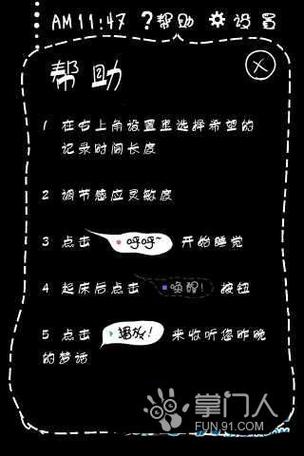 AM11:47 ?帮助 设置
帮助
1 在右上角设置里选择希望的
记录时间长度
2 调节感应灵敏度
3 点击 呼呼~ 开始睡觉
4 起床后点击 唤醒! 按钮
5 点击 播放! 来收听您昨晚
的梦话
掌门人
FUN91.COM